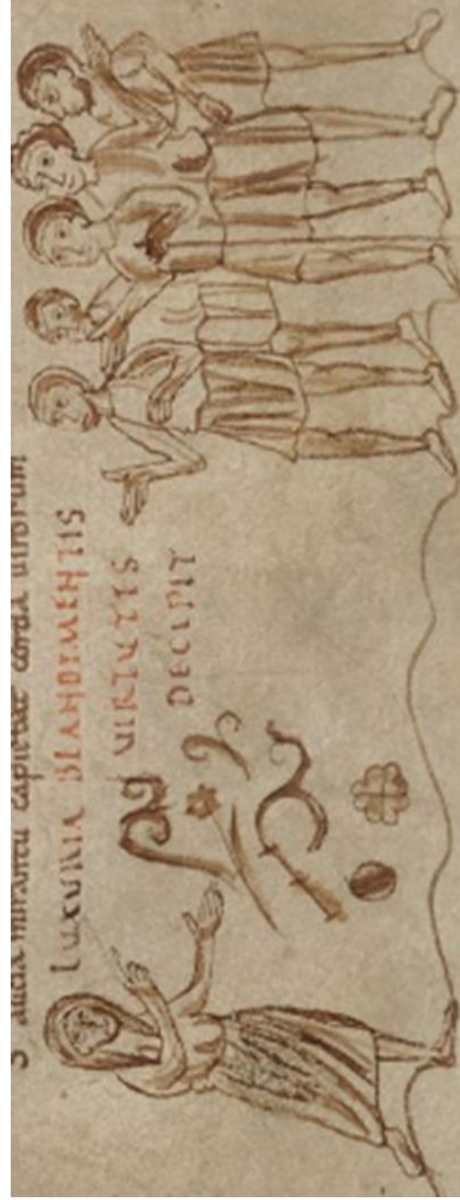 S aucia mirantū capiebat corda uirorum
LUXURIA BLANDIMENTIS
UIRTUTES
DECIPIT